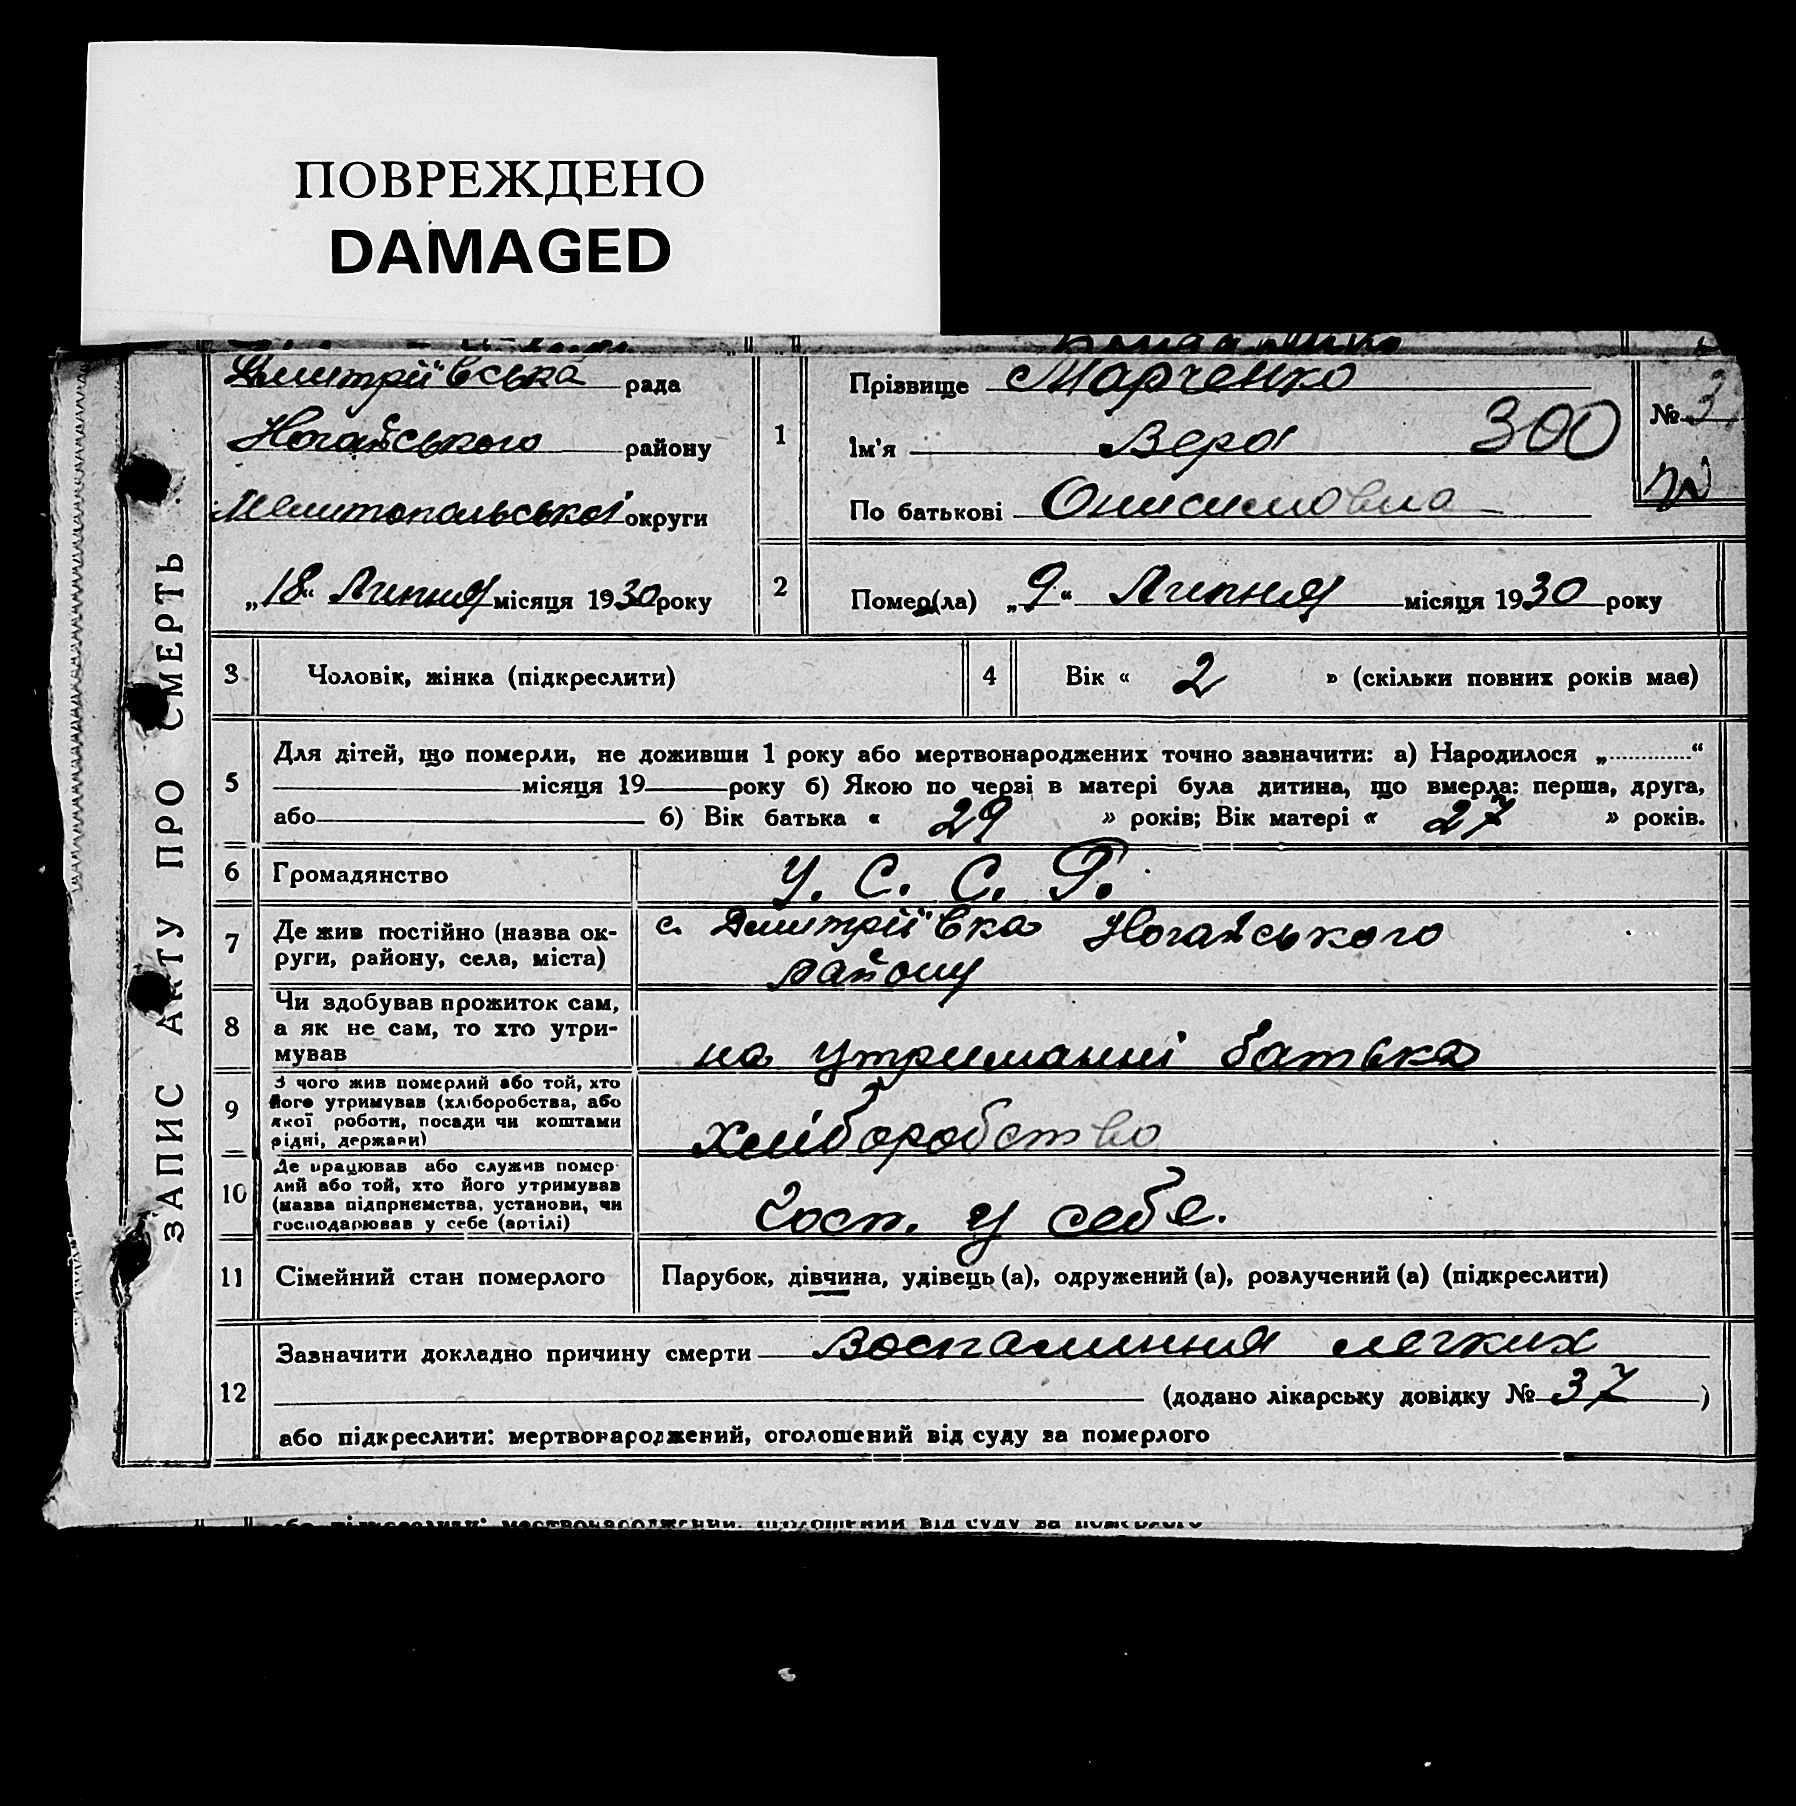 ПОВРЕЖДЕНО
DAMAGED
ЗАПИС АКТУ ПРО СМЕРТЬ
Дмитріївська рада
Ногайського району
Мелітопольської округи
„18“ Липня місяця 1930 року
1
Прізвище Марченко
Ім'я Вера 300
По батькові Онисимовна
№ 3
2
Помер(ла) „9“ Липня місяця 1930 року
3 Чоловік, жінка (підкреслити)
4 Вік « 2 » (скільки повних років має)
5 Для дітей, що померли, не доживши 1 року або мертвонароджених точно зазначити: а) Народилося „............“
місяця 19 року б) Якою по черві в матері була дитина, що вмерла: перша, друга,
або б) Вік батька « 29 » років; Вік матері « 27 » років.
6 Громадянство У. С. С. Р.
7 Де жив постійно (назва ок-
руги, району, села, міста)
с. Дмитріївка Ногайського
району
8 Чи здобував прожиток сам,
а як не сам, то хто утри-
мував
на утриманні батька
9 З чого жив померлий або той, хто
його утримував (хліборобства, або
якої роботи, посади чи коштами
рідні, держави)
хліборобство
10 Де працював або служив помер-
лий або той, хто його утримував
(назва підприємства, установи, чи
господарював у себе (артілі)
Госп. у себе.
11 Сімейний стан померлого Парубок, дівчина, удівець (а), одружений (а), розлучений (а) (підкреслити)
12 Зазначити докладно причину смерти Воспалиння легких
(додано лікарську довідку № 37 )
або підкреслити: мертвонароджений, оголошений від суду за померлого
або підкреслити: мертвонароджений, оголошений від суду за померлого